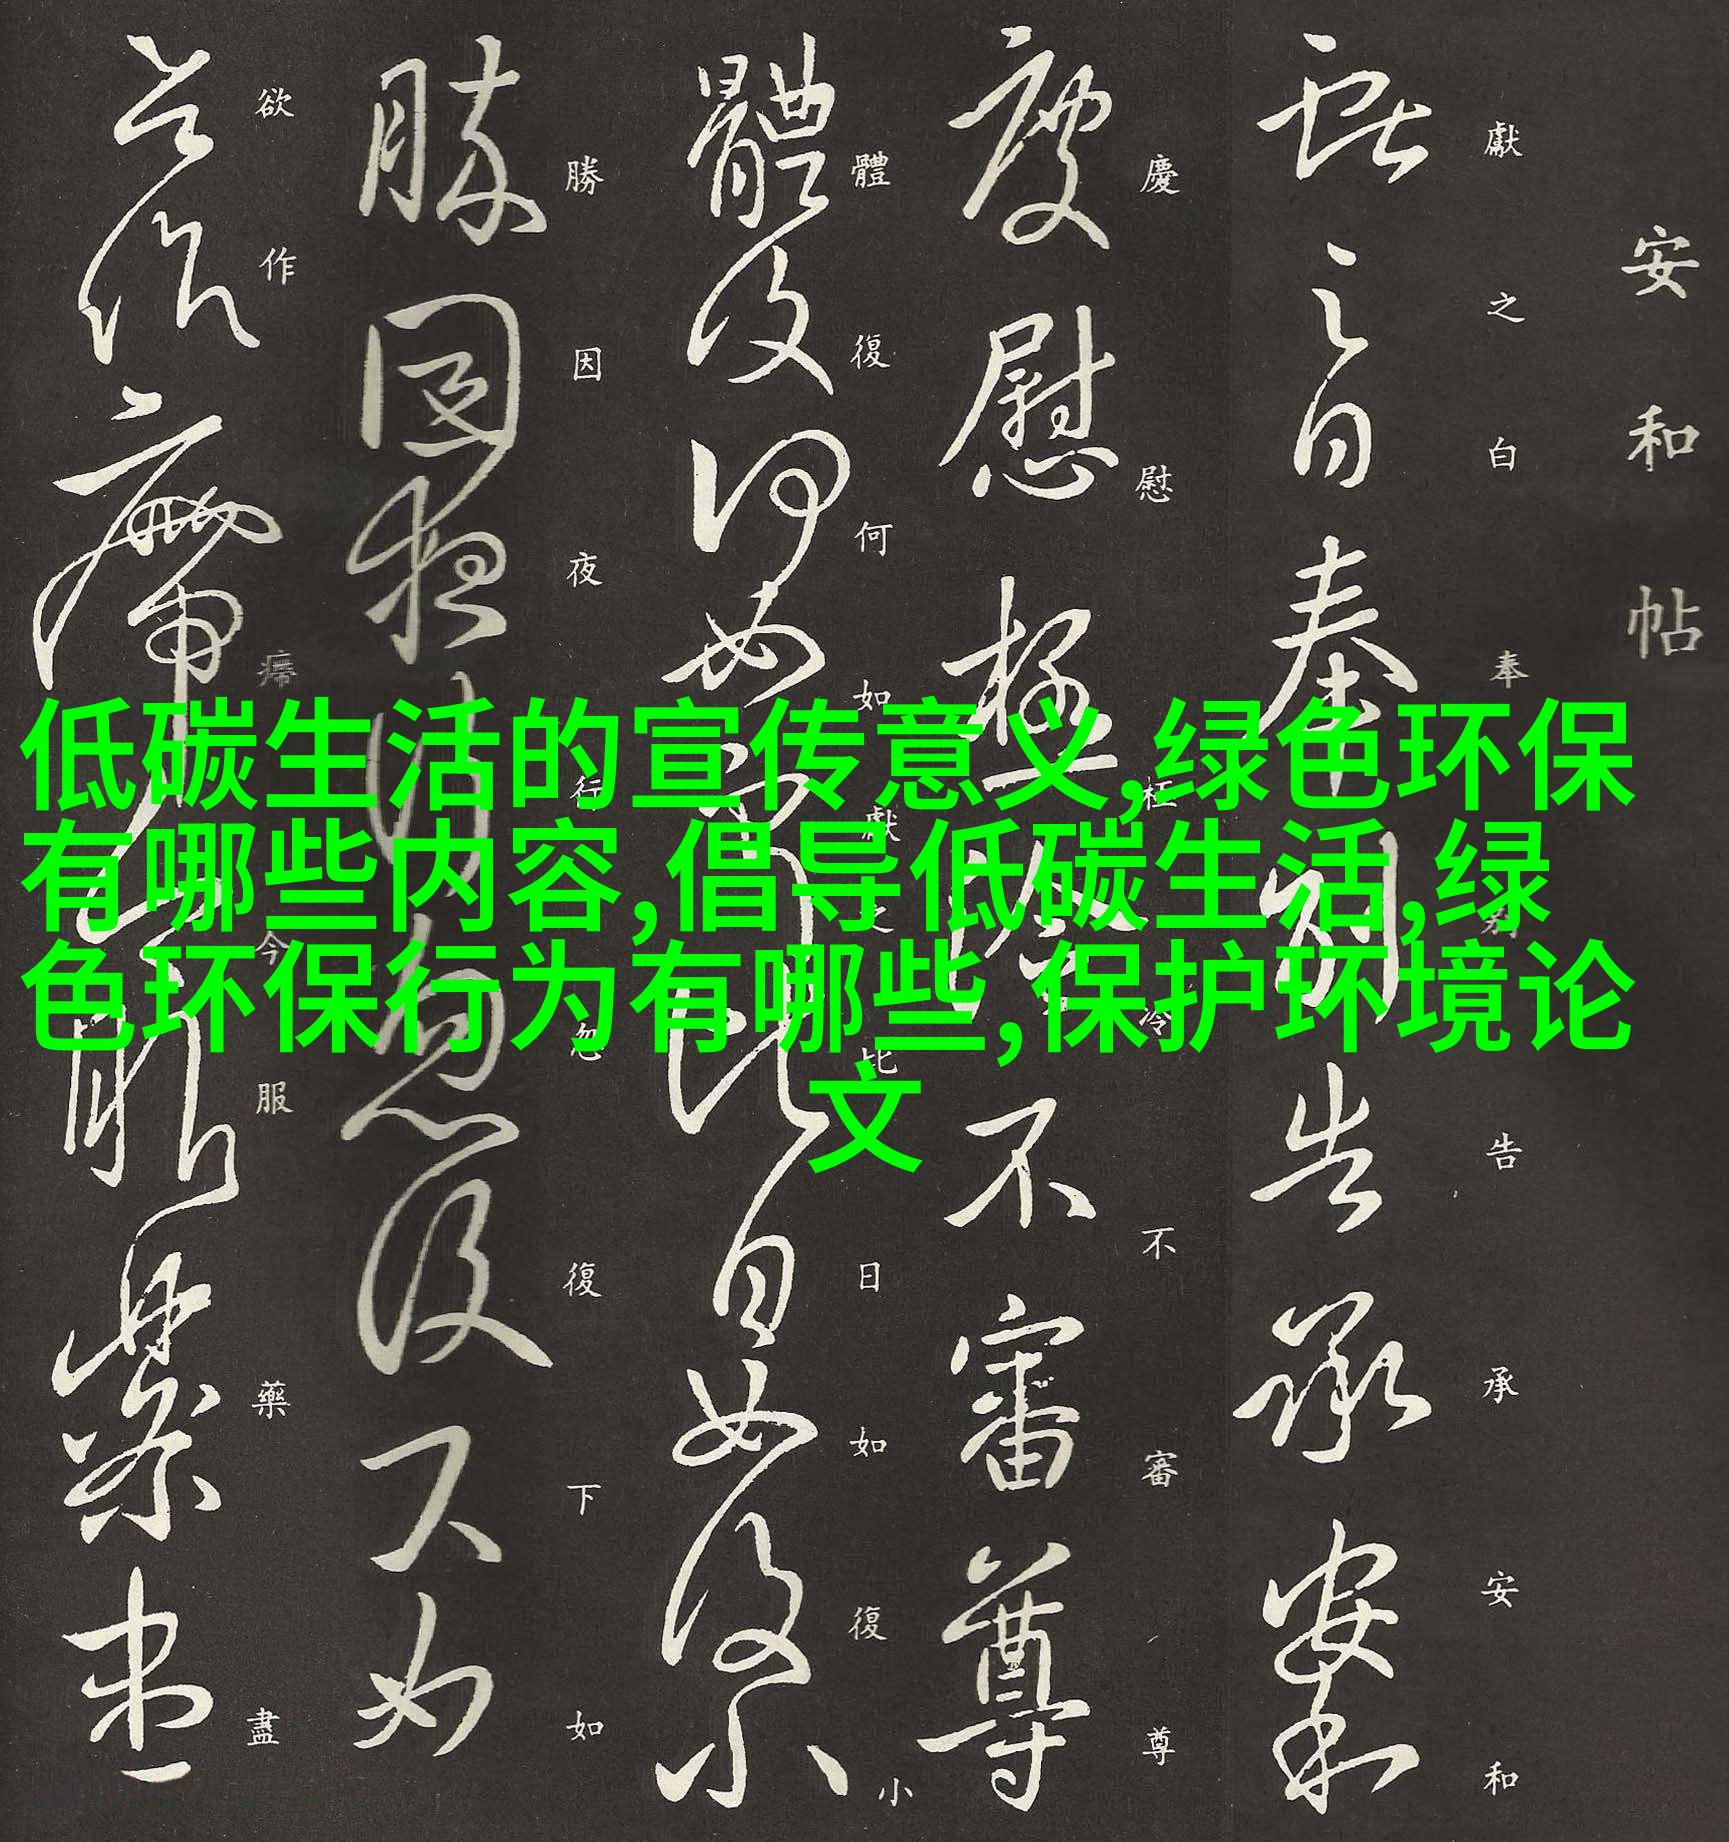 安和帖
獻之白奉別告承安和
慶慰極冷不審尊
體復何如獻之比日如復小
勝因夜行忽復下如
欲作癤今服藥盡
低碳生活的宣传意义,绿色环保
有哪些内容,倡导低碳生活,绿
色环保行为有哪些,保护环境论
文